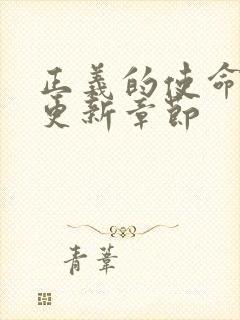 正義的使命
更新章節
青葦